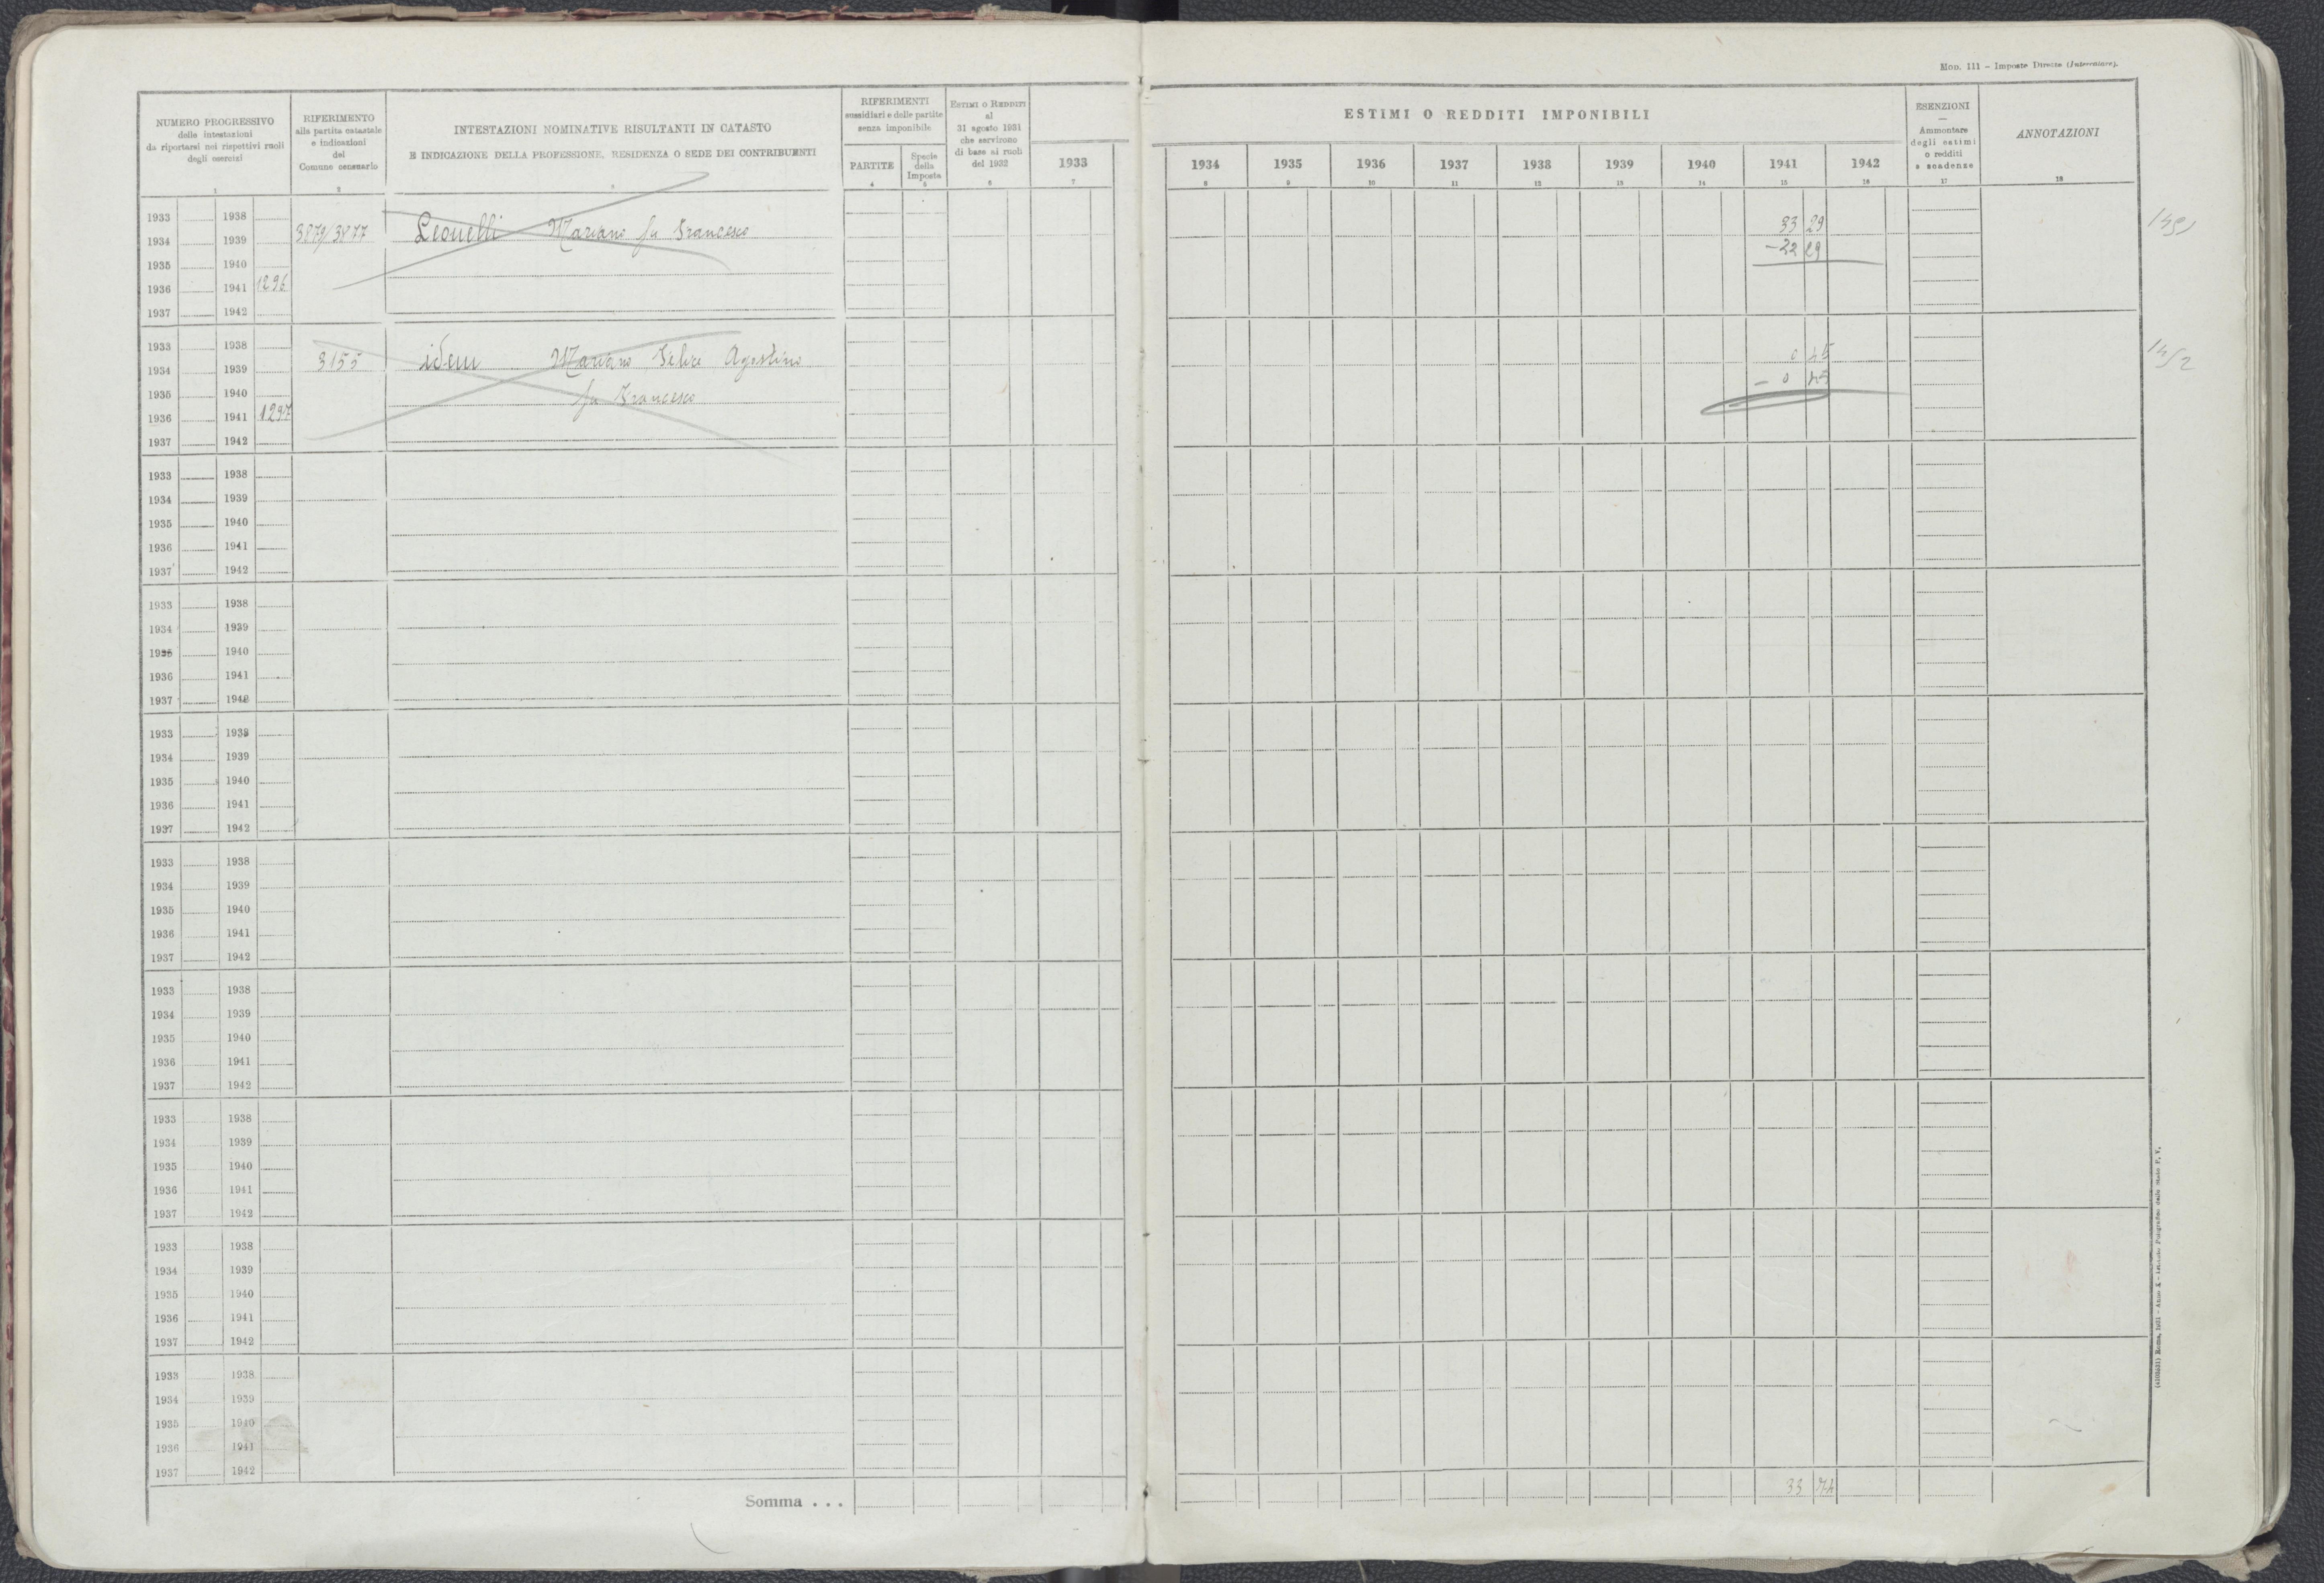 Mod. 111 – Imposte Dirette (Intercalare).
NUMERO PROGRESSIVO
delle intestazioni
da riportarsi nei rispettivi ruoli
degli esercizi
1
RIFERIMENTO
alla partita catastale
e indicazioni
del
Comune censuario
2
INTESTAZIONI NOMINATIVE RISULTANTI IN CATASTO
E INDICAZIONE DELLA PROFESSIONE, RESIDENZA O SEDE DEI CONTRIBUENTI
RIFERIMENTI
sussidiari e delle partite
senza imponibile
PARTITE
4
Specie
della
Imposta
5
Estimi o Redditi
al
31 agosto 1931
che servirono
di base ai ruoli
del 1932
6
ESTIMI O REDDITI IMPONIBILI
1933 1934 1935 1936 1937 1938 1939 1940 1941 1942
7 8 9 10 11 12 13 14 15 16
ESENZIONI
—
Ammontare
degli estimi
o redditi
e scadenze
17
ANNOTAZIONI
18
1933 1938
1934 1939 3879/3877 Leonelli Mariano fu Francesco 33 29
1935 1940
1936 1941 1296
1937 1942
1933 1938
1934 1939 3155 idem Mariano Felice Agostino 0 45
1935 1940 fu Francesco – 0 45
1936 1941 1297
1937 1942
1933 1938
1934 1939
1935 1940
1936 1941
1937 1942
1933 1938
1934 1939
1935 1940
1936 1941
1937 1942
1933 1938
1934 1939
1935 1940
1936 1941
1937 1942
1933 1938
1934 1939
1935 1940
1936 1941
1937 1942
1933 1938
1934 1939
1935 1940
1936 1941
1937 1942
1933 1938
1934 1939
1935 1940
1936 1941
1937 1942
1933 1938
1934 1939
1935 1940
1936 1941
1937 1942
1933 1938
1934 1939
1935 1940
1936 1941
1937 1942
Somma . . . 33 74